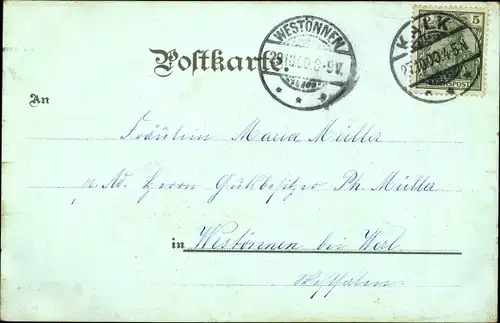 WESTÖNNEN
29.10.00.8-9V.
KALK
5
Postkarte.
An
Fräulein Maria Müller
p. Ad. Herrn Gutsbesitzer Ph. Müller
in Westönnen bei Werl
Westfalen.